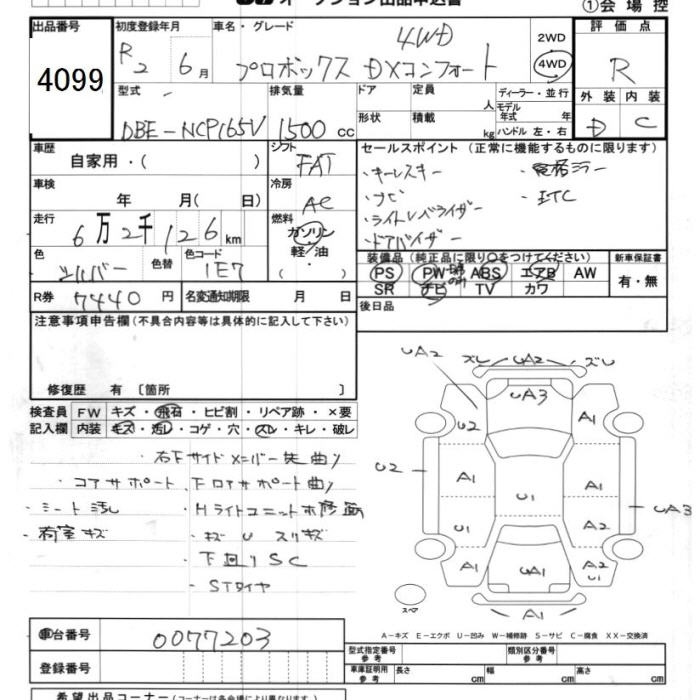 オークション出品申込書
①会場控
出品番号
4099
初度登録年月
R2 6月
車名・グレード
4WD
プロボックス DXコンフォート
2WD
4WD
評価点
R
型式
DBE-NCP165V
排気量
1500cc
ドア
定員
人
形状
積載
kg
ディーラー・並行
モデル年式
年式
ハンドル 左・右
外装
内装
D
C
車歴
自家用・( )
シフト
FAT
セールスポイント (正常に機能するものに限ります)
・キーレスキー
・ナビ
・ETC
・ライトレバライザー
・ドアバイザー
車検
年 月( 日)
冷房
AC
走行
6万2千126km
燃料
ガソリン
軽/油
・( )
色
シルバー
色替
色コード
1E7
装備品 (純正品に限り○をつけてください)
新車保証書
PS PW ABS エアB AW
SR ナビ TV カワ
有・無
R券
7440円
名変通知期限 月 日
後日品
注意事項申告欄 (不具合内容等は具体的に記入して下さい)
修復歴 有 〔箇所 〕
検査員
記入欄
FW キズ・飛石・ヒビ割・リペア跡・×要
内装 キズ・汚レ・コゲ・穴・スレ・キレ・破レ
・右下サイドメンバー先曲り
・コアサポート、下ロアサポート曲り
・シート汚レ
・Hライトユニット
・荷室キズ
・キズ U スリキズ
・下回りSC
・STタイヤ
UA2
スレ
UA2
スレ
UA3
U2
A1
U2
A1
A1
U1
UA3
U1
A2
A1
UA1
A2
U1
A1
スペア
A-キズ E-エクボ U-凹み W-補修跡 S-サビ C-腐食 XX-交換済
車台番号
0077203
登録番号
型式指定番号
参考
類別区分番号
参考
車庫証明用
参考
長さ
cm
幅
cm
高さ
cm
希望出品コーナー (コーナーは各会場により異なります)